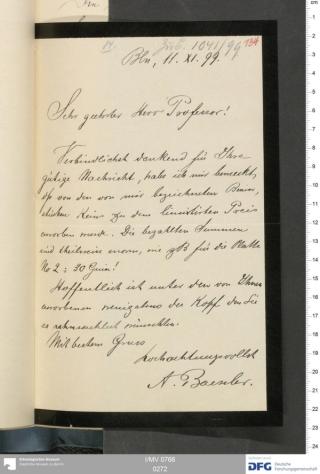 IV. Jub. 1041/99 134
Bln, 11. XI. 99.
Sehr geehrter Herr Professor!
Verbindlichst dankend für Ihre
gütige Nachricht, habe ich mir bemerkt,
von den von mir bezeichneten
Kein zu dem limitirten Preis
erworben wurde. Die bezahlten Summen
sind theilweise enorm, wie zB für die Maske
No 2 : 30 Guin!
Hoffentlich ist unter den von Ihnen
erworbenen wenigstens der Kopf den Sie
so sehnsuchtlich wünschten.
Mit bestem Gruss
hochachtungsvollst
A. Baessler.
I/MV 0766
0272
Ethnologisches Museum
Staatliche Museen zu Berlin
DFG Deutsche
Forschungsgemeinschaft